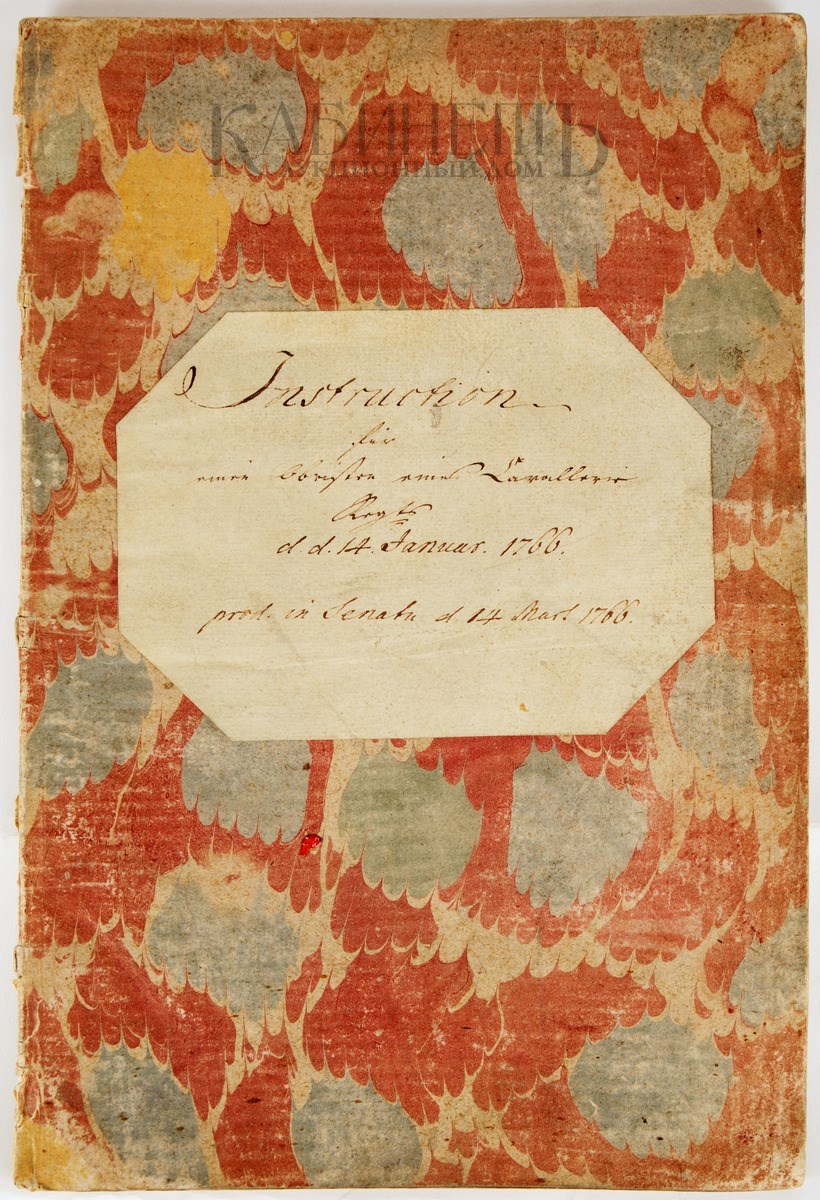 КАБИНЕТЪ
АУКЦИОННЫЙ ДОМ
Instruction
für
einen Obristen eines Cavallerie
Regts
d. d. 14. Januar. 1766.
prod. in Senatu d 14 Mart 1766.